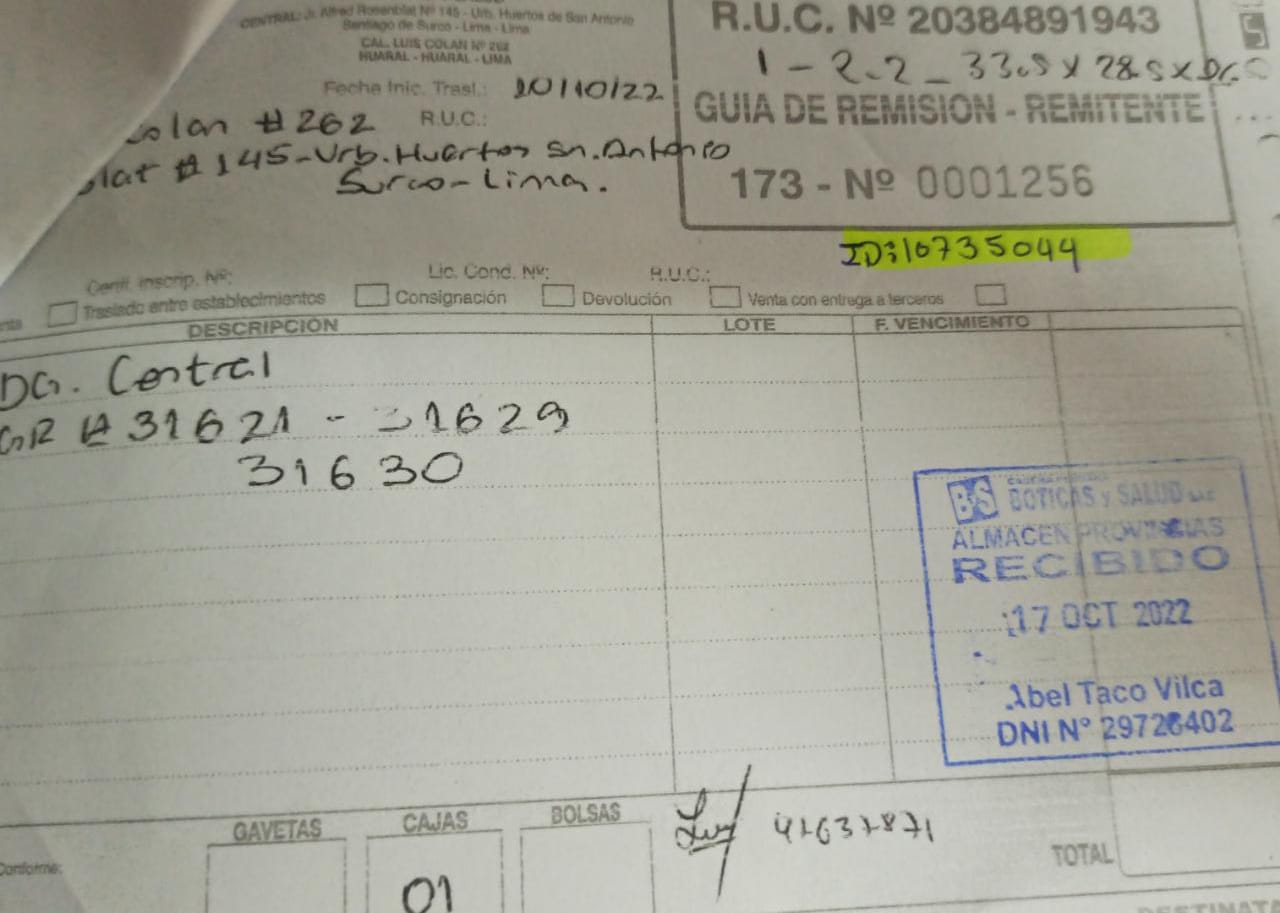 CENTRAL: Jr. Alfred Rosenblat Nº 145 - Urb. Huertos de San Antonio
Santiago de Surco - Lima - Lima
CAL. LUIS COLAN Nº 262
HUARAL - HUARAL - LIMA
R.U.C. Nº 20384891943
1 - 2.2 - 33.5 x 28.5 x
GUIA DE REMISION - REMITENTE
173 - Nº 0001256
Fecha Inic. Trasl.: 20/10/22
colan #262 R.U.C.:
blat #145-Urb. Huertos Sn. Antonio
Surco-Lima.
ID:10735044
Certif. Inscrip. Nº: Lic. Cond. Nº: R.U.C.:
Traslado entre establecimientos Consignación Devolución Venta con entrega a terceros
DESCRIPCIÓN LOTE F. VENCIMIENTO
DG. Central
GR #31621 - 31629
31630
BS BOTICAS y SALUD SAC
ALMACEN PROVINCIAS
RECIBIDO
17 OCT 2022
Abel Taco Vilca
DNI N° 29726402
GAVETAS CAJAS BOLSAS
01
TOTAL
Conforme: